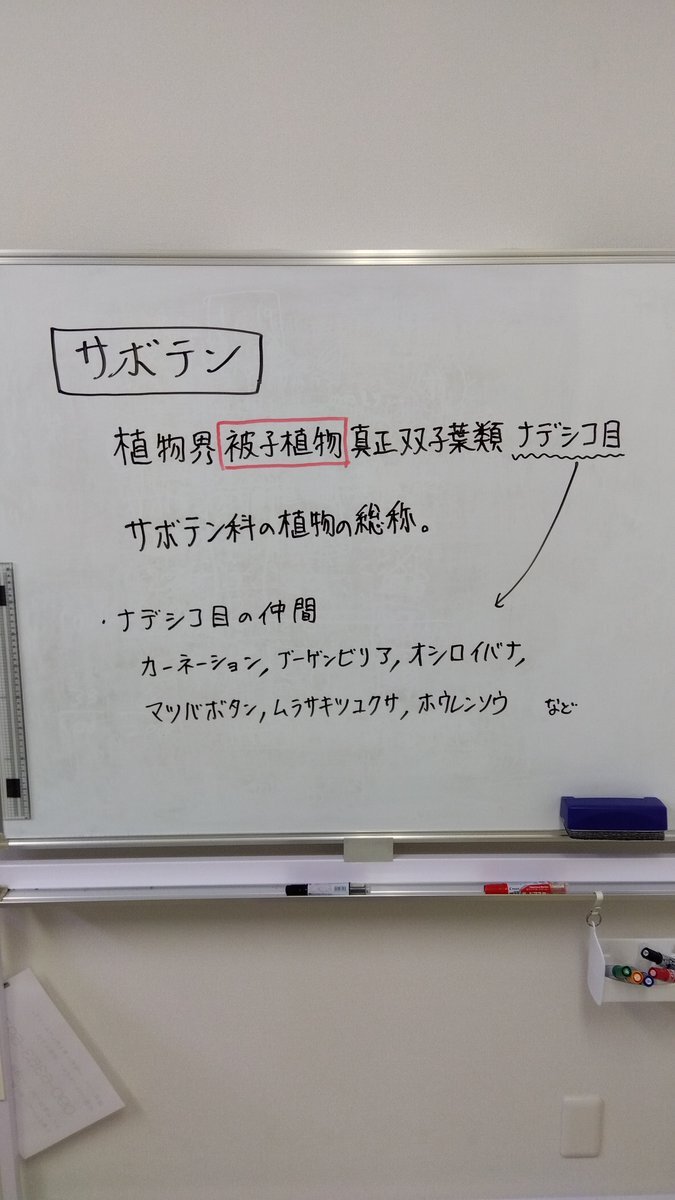 サボテン
植物界 被子植物 真正双子葉類 ナデシコ目
サボテン科の植物の総称。
・ナデシコ目の仲間
カーネーション, ブーゲンビリア, オシロイバナ,
マツバボタン, ムラサキツユクサ, ホウレンソウ など